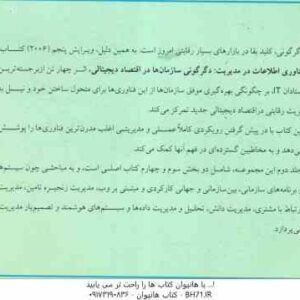 گرگونی، کلید بقا در بازارهای بسیار رقابتی امروز است. به همین دلیل، ویرایش پنجم (۲۰۰۶) کتـاب
فناوری اطلاعات در مدیریت: دگرگونی سازمان‌ها در اقتصاد دیجیتالی، اثـر چهار تن ازبرجسته‌تریـن
ستادان IT، بر چگونگی بهره‌گیری موفق سازمان‌ها از این فناوری‌ها برای متحول ساختن خود و نیـل به
یت رقابتی دراقتصاد دیجیتالی جدید تمرکز می‌کند.
ن کتاب با در پیش گرفتن رویکردی کاملاً عمـلی و مدیریتی اغلب مدرن‌ترین این فناوری‌ها را پوشـش
ی‌دهد و به مخاطبین گسترده‌ای در فهم آنها کمک می‌کند.
لد دوم این مجموعه، شامل دو بخش سوم و چهارم کتاب اصلـی است، و به مباحثـی چون سیستم
برنامه‌های سازمانی، بین‌سازمانی و جهانی کاربردی و مبتنی بر وب، مدیریت زنجیـره تامین، مدیریت
رتباط با مشتری، مدیریت دانش، تحلیل و مدیریت داده‌ها و سیستـم‌های هوشمند و تصمیم‌یار مدیریت
ی‌پردازد.
با هانیوان کتاب ها را راحت تر می یابید
BH71.IR - کتاب هانیوان - ۰۹۱۷۳۱۹۰۸۳۶